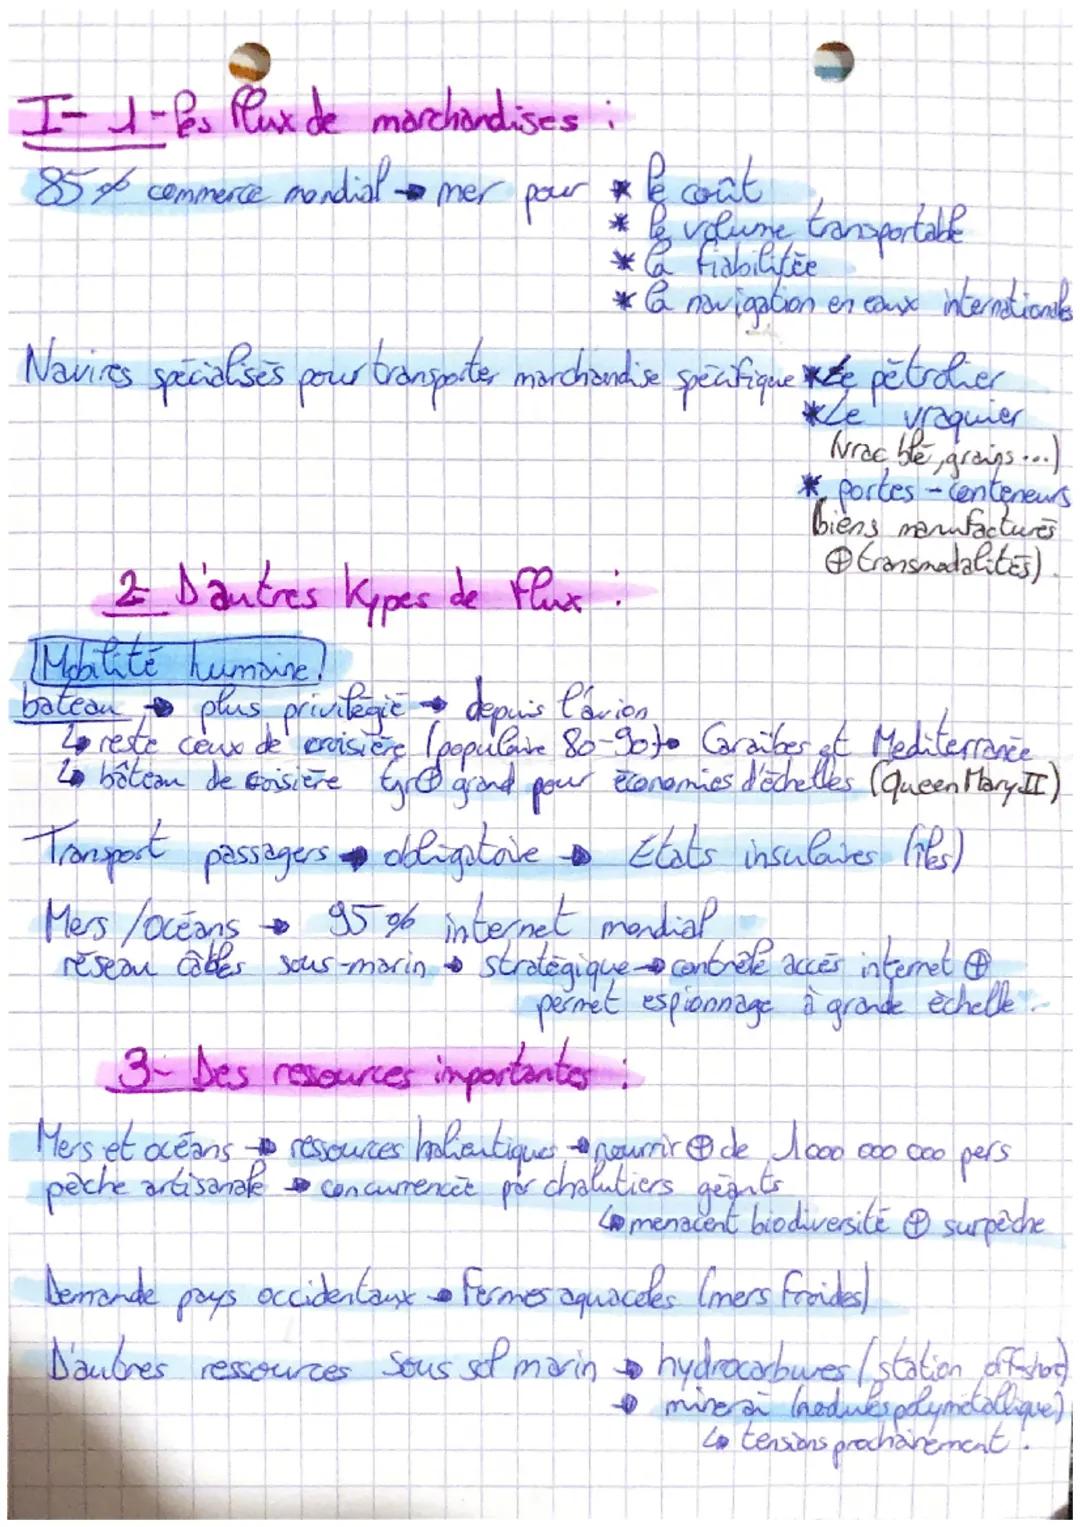 I- 1- Les flux de marchandises :
85 % commerce mondial → mer pour * le coût
* le volume transportable
* la fiabilitée
* la navigation en eaux internationales
Navires spécialisés pour transporter marchandise spécifique * Le pétrolier
* Le vraquier
(vrac blé, grains ...)
* portes - conteneurs
biens manufacturés
⊕ transmodalités).
2- D'autres types de flux :
Mobilité humaine
bateau → plus privilégié → depuis l'avion
↳ reste ceux de croisière (populaire 80-90) → Caraïbes et Mediterranée
↳ bâteau de croisière tjr ⊕ grand pour économies d'échelles (Queen Mary II)
Transport passagers → obligatoire → Etats insulaires (îles)
Mers / océans → 95 % internet mondial
réseau câbles sous-marin → stratégique → contrôle accès internet ⊕
permet espionnage à grande échelle.
3- Des ressources importantes :
Mers et océans → ressources halieutiques → nourrir ⊕ de 1 000 000 000 pers
pêche artisanale → concurrencée par chalutiers géants
↳ menacent biodiversité ⊕ surpêche
Demande pays occidentaux → Fermes aquacoles (mers froides)
D'autres ressources sous sol marin → hydrocarbures (station off-shore)
→ minerai (nodules polymétallique)
↳ tensions prochainement.